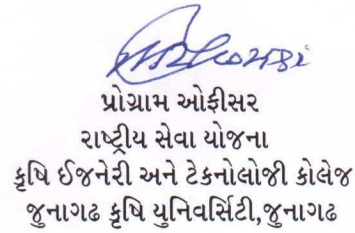 પ્રોગ્રામ ઓફીસર
રાષ્ટ્રીય સેવા યોજના
કૃષિ ઈજનેરી અને ટેકનોલોજી કોલેજ
જુનાગઢ કૃષિ યુનિવર્સિટી,જુનાગઢ